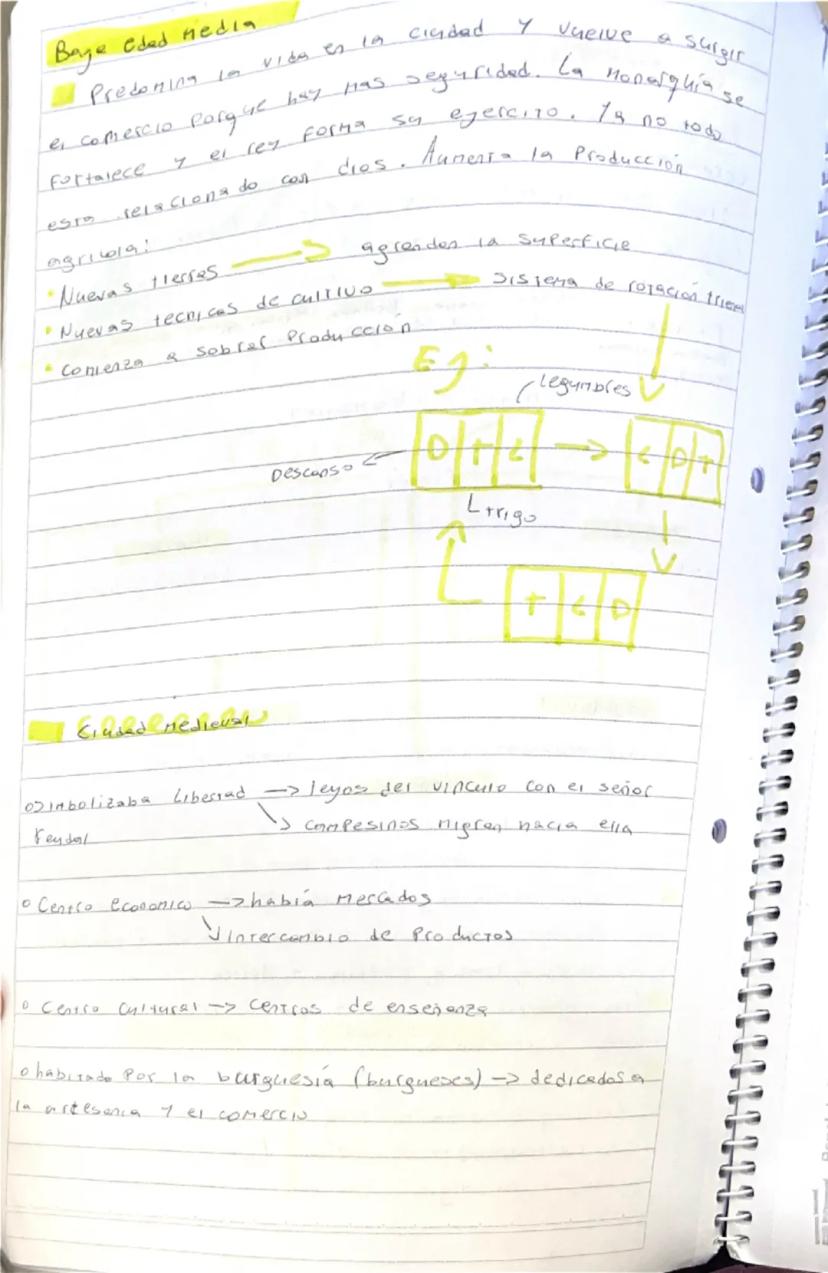 Baja edad Media
Predomina la vida en la ciudad y vuelve a surgir
el comercio porque hay mas seguridad. La Monarquía se
fortalece y el rey forma su ejercito. Ya no todo
esta relacionado con dios. Aumenta la Producción
agricola:
• Nuevas tierras → agrandan la superficie
• Nuevas tecnicas de cultivo → sistema de rotación trienal
• comienza a sobrar Producción
Ej:
legumbres
D T L → L D T
Descanso
trigo
T L D
Ciudad Medieval
o simbolizaba Libertad → lejos del vinculo con el señor
feudal ↘ campesinos migran hacia ella
o Centro economico → había Mercados
↘ intercambio de Productos
o Centro cultural → centros de enseñanza
o habitado Por la burguesía (burgueses) → dedicados a
la artesania y el comercio